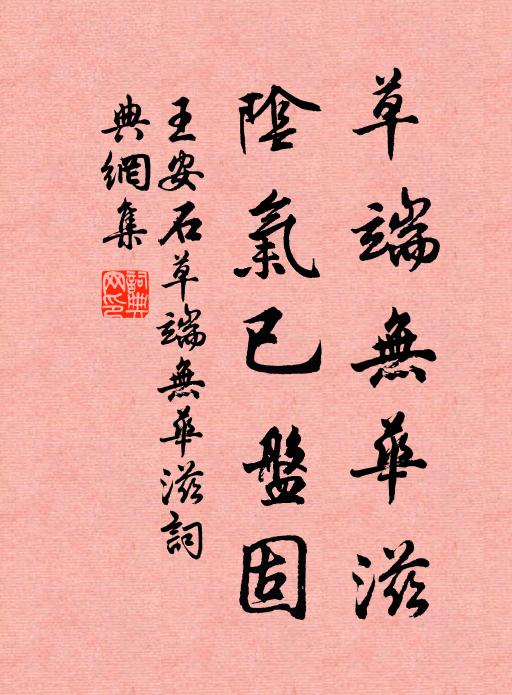 草端無華滋
陰氣已盤固
王安石草端無華滋詞
典網集
詞典網印